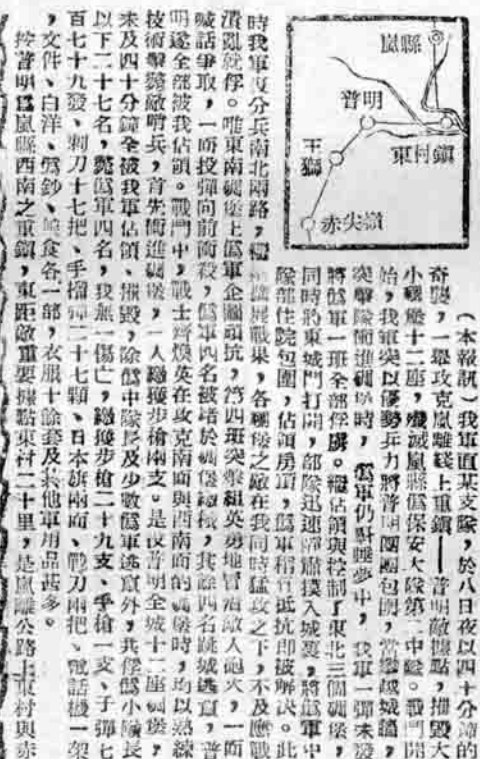 嵐縣
普明
東村鎮
王獅
赤尖嶺
（本報訊）我軍直某支隊，於八日夜以四十分鐘的
奇襲，一舉攻克嵐離綫上重鎮——普明敵據點，摧毀大
小碉堡十二座，殲滅嵐縣偽保安大隊第二中隊。戰鬥開
始，我軍突以優勢兵力將普明團團包圍，當越城牆，
突擊隊衝進碉堡時，偽軍仍酣睡夢中，我軍一彈未發
將偽軍一班全部俘虜。繼佔領與控制了東北三個碉堡，
同時將東城門打開，部隊迅速肅摸入城裏，將偽軍中
隊部住院包圍，佔領房頂，偽軍稍有抵抗即被解決。此
時我軍復分兵南北兩路，擴展戰果，各碉堡之敵在我同時猛攻之下，不及應戰
潰亂就俘。唯東南碉堡上偽軍企圖頑抗，第四班突擊組英勇地冒着敵人砲火，一面
喊話爭取，一面投彈向前衝殺，偽軍四名被堵於碉堡繳械，其餘四名跳城逃竄，普
明遂全部被我佔領。戰鬥中，戰士齊煥英在攻克南面與西南面的碉堡時，均以熟練
技術擊斃敵哨兵，首先衝進碉堡，一人繳獲步槍兩支。是役普明全城十二座碉堡，
未及四十分鐘全被我軍佔領、摧毀，除偽中隊長及少數偽軍逃竄外，共俘偽小隊長
以下二十七名，斃偽軍四名，我無一傷亡，繳獲步槍二十九支、手槍一支、子彈七
百七十九發、刺刀十七把、手榴彈二十七顆、日本旗兩面、戰刀兩把、電話機一架
，文件、白洋、偽鈔、糧食各一部，衣服十餘套及其他軍用品甚多。
按普明為嵐縣西南之重鎮，東距敵重要據點東村二十里，是嵐離公路上東村與赤